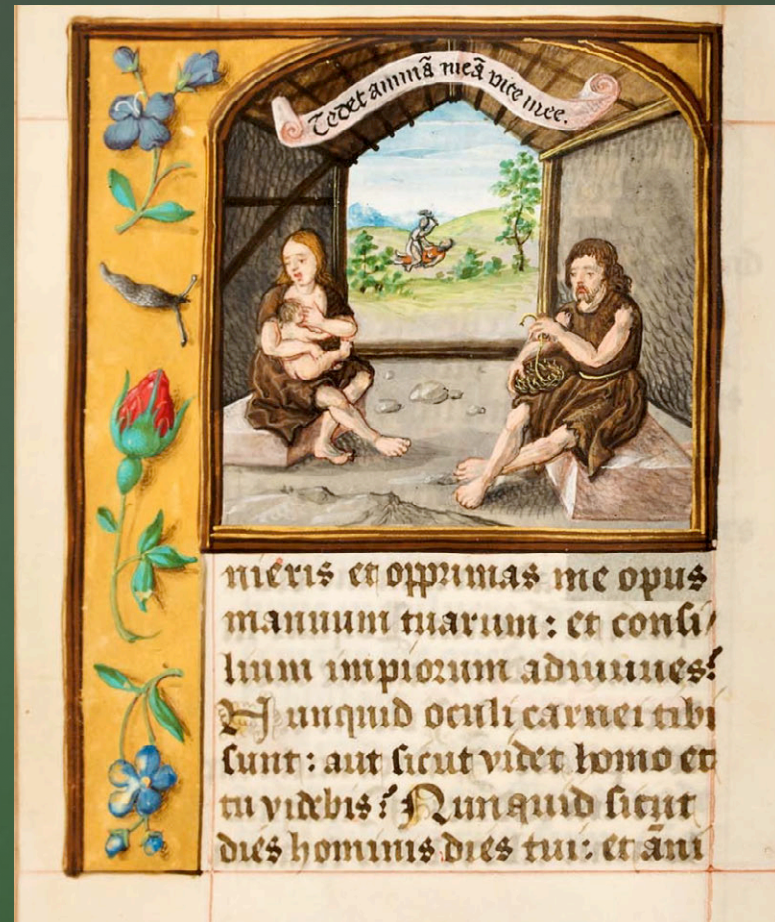 Tedet animā meā vite mee.
nieris et opprimas me opus
manuum tuarum: et consi/
lium impiorum adiuues?
Nunquid oculi carnei tibi
sunt: aut sicut videt homo et
tu videbis? Nunquid sicut
dies hominis dies tui: et āni